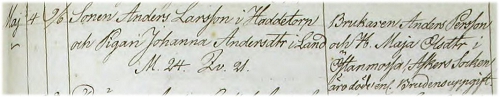 Maj 4 96. Sonen Anders Larsson i Haddetorp
och Pigan Johanna Andersdtr i Lund
M. 24. Qv. 21.
Brukaren Anders Persson
och H. Maja Olsdtr i
Östanmossa, Askers Socken
äro döde, enl. Brudens uppgift